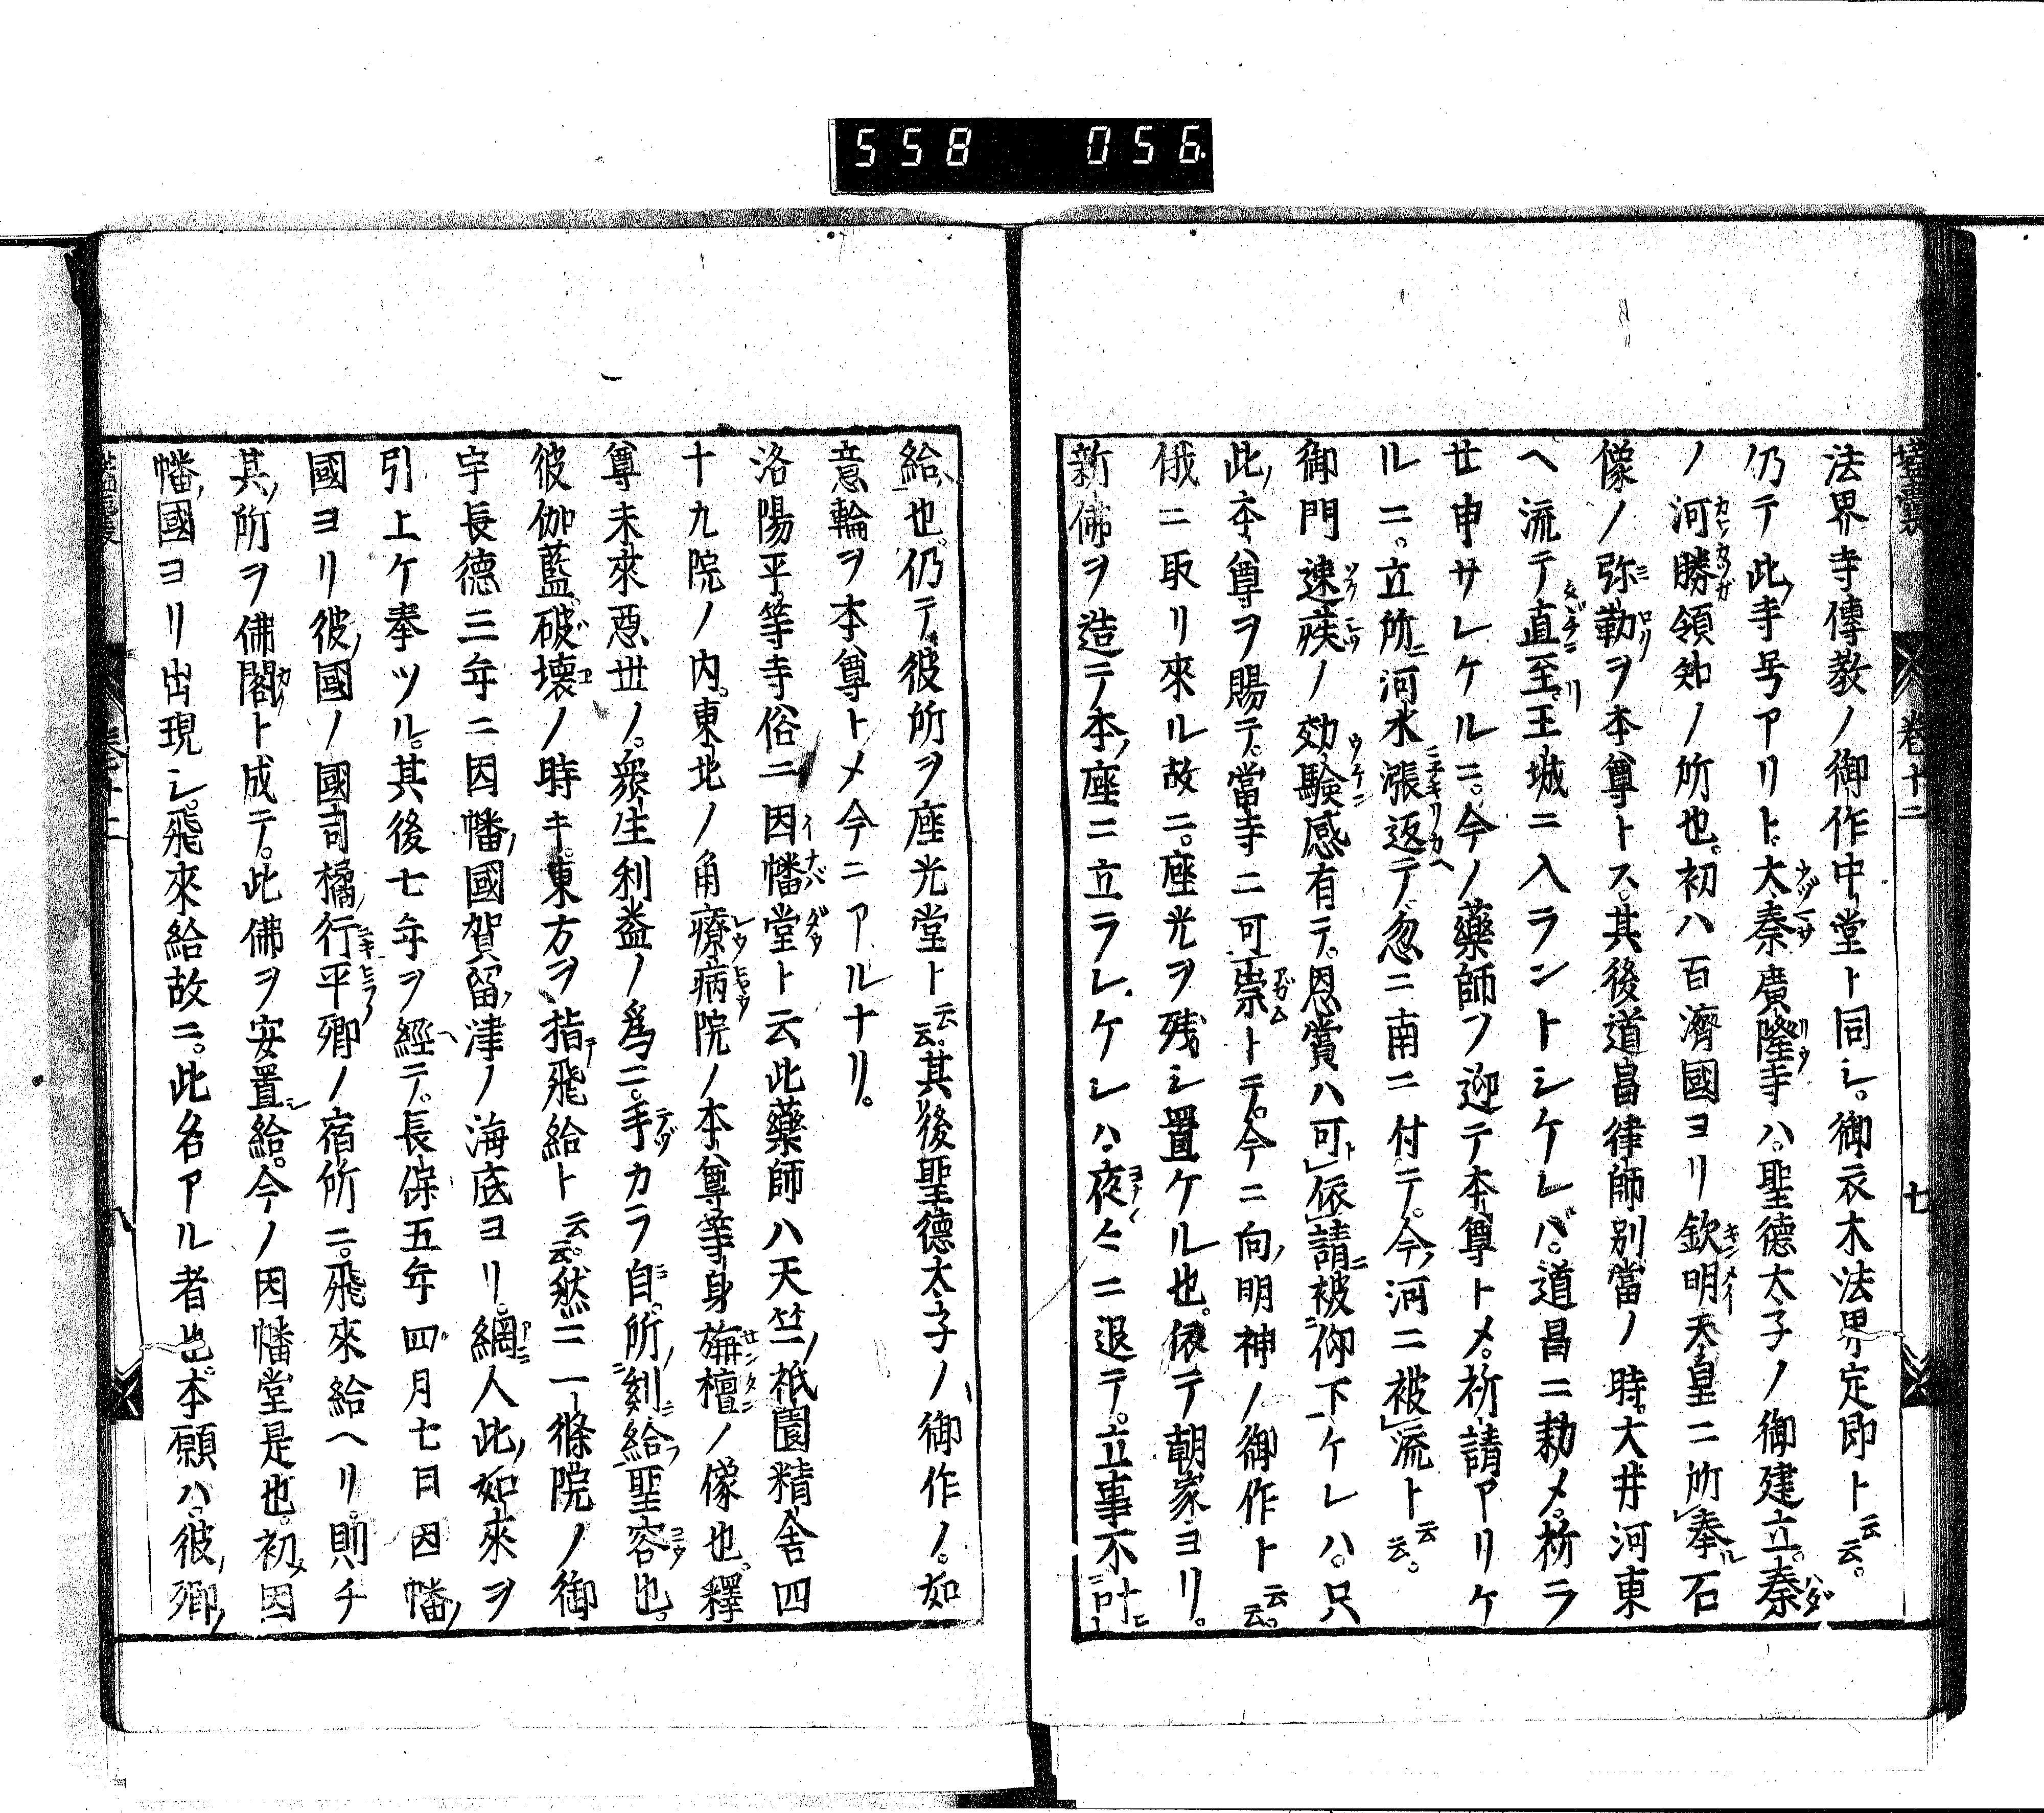 558 056
壒囊 卷十二 七
法界寺傳教ノ御作中堂ト同シ。御衣木法界定即ト云云。
仍テ此寺号アリト。大秦廣隆寺ハ。聖德太子ノ御建立。秦
ノ河勝領知ノ所也。初ハ百濟國ヨリ欽明天皇ニ所奉石
像ノ弥勒ヲ本尊トス。其後道昌律師別當ノ時。大井河東
ヘ流テ直至王城ニ入ラントシケレバ。道昌ニ勅メ。祈ラ
せ申サレケルニ。今ノ藥師ヲ迎テ本尊トメ。祈請アリケ
ルニ。立所河水漲返テ。忽ニ南ニ付テ。今河ニ被流ト云云。
御門速疾ノ効驗感有テ。恩賞ハ可依請被仰下ケレハ。只
此本尊ヲ賜テ。當寺ニ可崇トテ。今ニ向明神ノ御作ト云云。
俄ニ取リ來ル故ニ。座光ヲ残シ置ケル也。依テ朝家ヨリ。
新佛ヲ造テ本座ニ立ラレケレハ。夜々ニ退テ。立事不叶
給也。仍テ彼所ヲ座光堂ト云云。其後聖德太子ノ御作ノ。如
意輪ヲ本尊トメ今ニアルナリ。
洛陽平等寺俗ニ因幡堂ト云此藥師ハ天竺祇園精舍四
十九院ノ内。東北ノ角療病院ノ本尊等身旃檀ノ像也。釋
尊未來惡世ノ。衆生利益ノ爲ニ。手カラ自所刻給聖容也。
彼伽藍破壊ノ時キ。東方ヲ指飛給ト云云。然ニ一條院ノ御
宇長德三年ニ因幡國賀留津ノ海底ヨリ。網人此如來ヲ
引上ケ奉ツル。其後七年ヲ經テ。長保五年四月七日因幡
國ヨリ彼國ノ國司橘行平卿ノ宿所ニ。飛來給ヘリ。則チ
其所ヲ佛閣ト成テ。此佛ヲ安置給。今ノ因幡堂是也。初因
幡國ヨリ出現シ。飛來給故ニ。此名アル者也。本願ハ。彼卿
卷十二 八